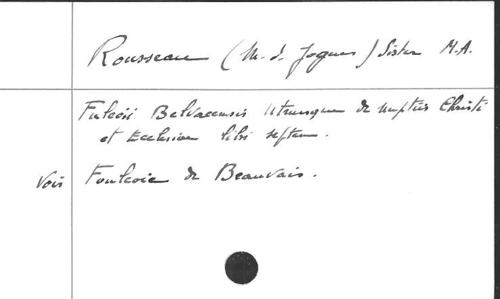 Rousseau (M. I. Jogues) Sister M.A.
Fulcoii Belvacensis Utriusque de nuptiis Christi
et Ecclesiae libri septem.
Voir Foulcoie de Beauvais.